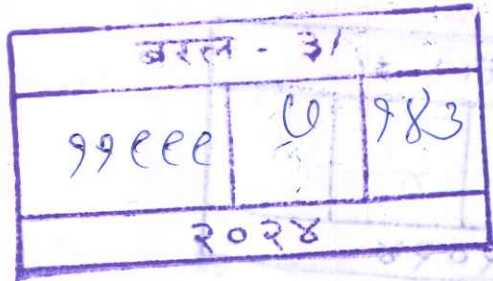 बरल - ३/
११९९९ ७ १४३
२०२४